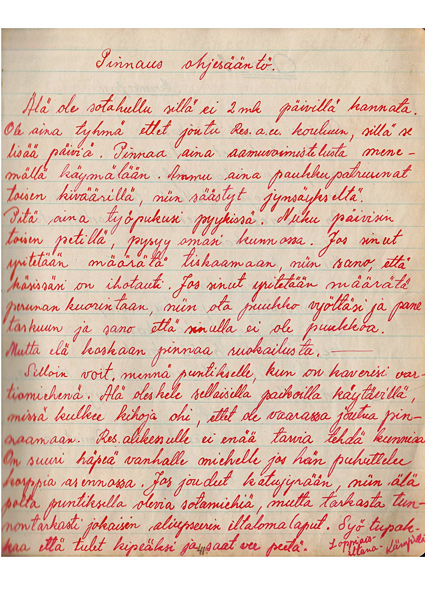 Pinnaus ohjesääntö.
Älä ole sotahullu sillä ei 2 mk päivillä kannata.
Ole aina tyhmä ettet joutu Res. a.ee. kouluun, sillä se
lisää päiviä. Pinnaa aina aamuvoimistelusta mene-
mällä käymälään. Ammu aina paukkupatruunat
toisen kiväärillä, niin säästyt jynsäykseltä.
Pitä aina työpukusi pyykissä. Nuku päivisin
toisen petillä, pysyy omasi kunnossa. Jos sinut
yritetään määrätä tiskaamaan, niin sano, että
käsissäsi on ihotauti. Jos sinut yritetään määrätä
perunan kuorintaan, niin ota puukko vyöltäsi ja pane
taskuun ja sano että sinulla ei ole puukkoa.
Mutta elä koskaan pinnaa ruokailusta. —
Silloin voit, mennä puntikselle, kun on kaverisi var-
tiomiehenä. Älä oleskele sellaisilla paikoilla käytävillä,
missä kulkee kihoja ohi, ettet ole vaarassa joutua pin-
naamaan. Res. alikessulle ei enää tarvia tehdä kunniaa
On suuri häpeä vanhalle miehelle jos hän puhuttelee
korppia arvonnossa. Jos joudut katujyrään, niin älä
polta puntiksella olevia sotamiehiä, mutta tarkasta tun-
nontarkasti jokaisen aliupseerin iltalomalaput. Syö tupak-
kaa että tulet kipeäksi ja saat vee peetä.
Loppiais-
attona-